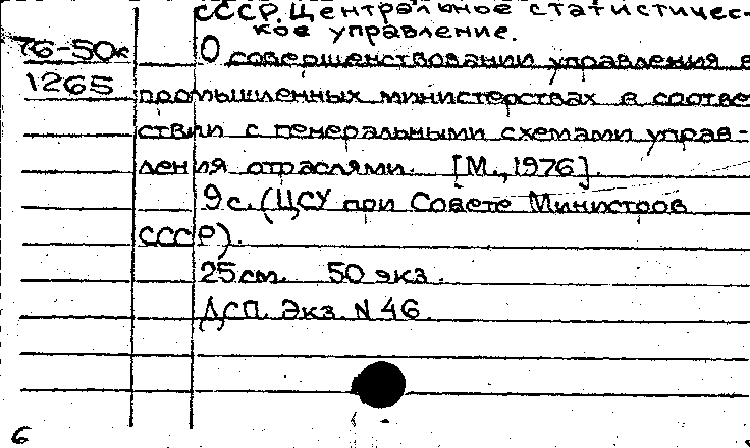 СССР. Центральное статистичес-
кое управление.
76-50к О совершенствовании управления в
1265 промышленных министерствах в соотве
ствии с генеральными схемами управ-
ления отраслями. [М., 1976].
9с. (ЦСУ при Совете Министров
СССР).
25см. 50 экз.
ДСП. Экз. N 46.
6